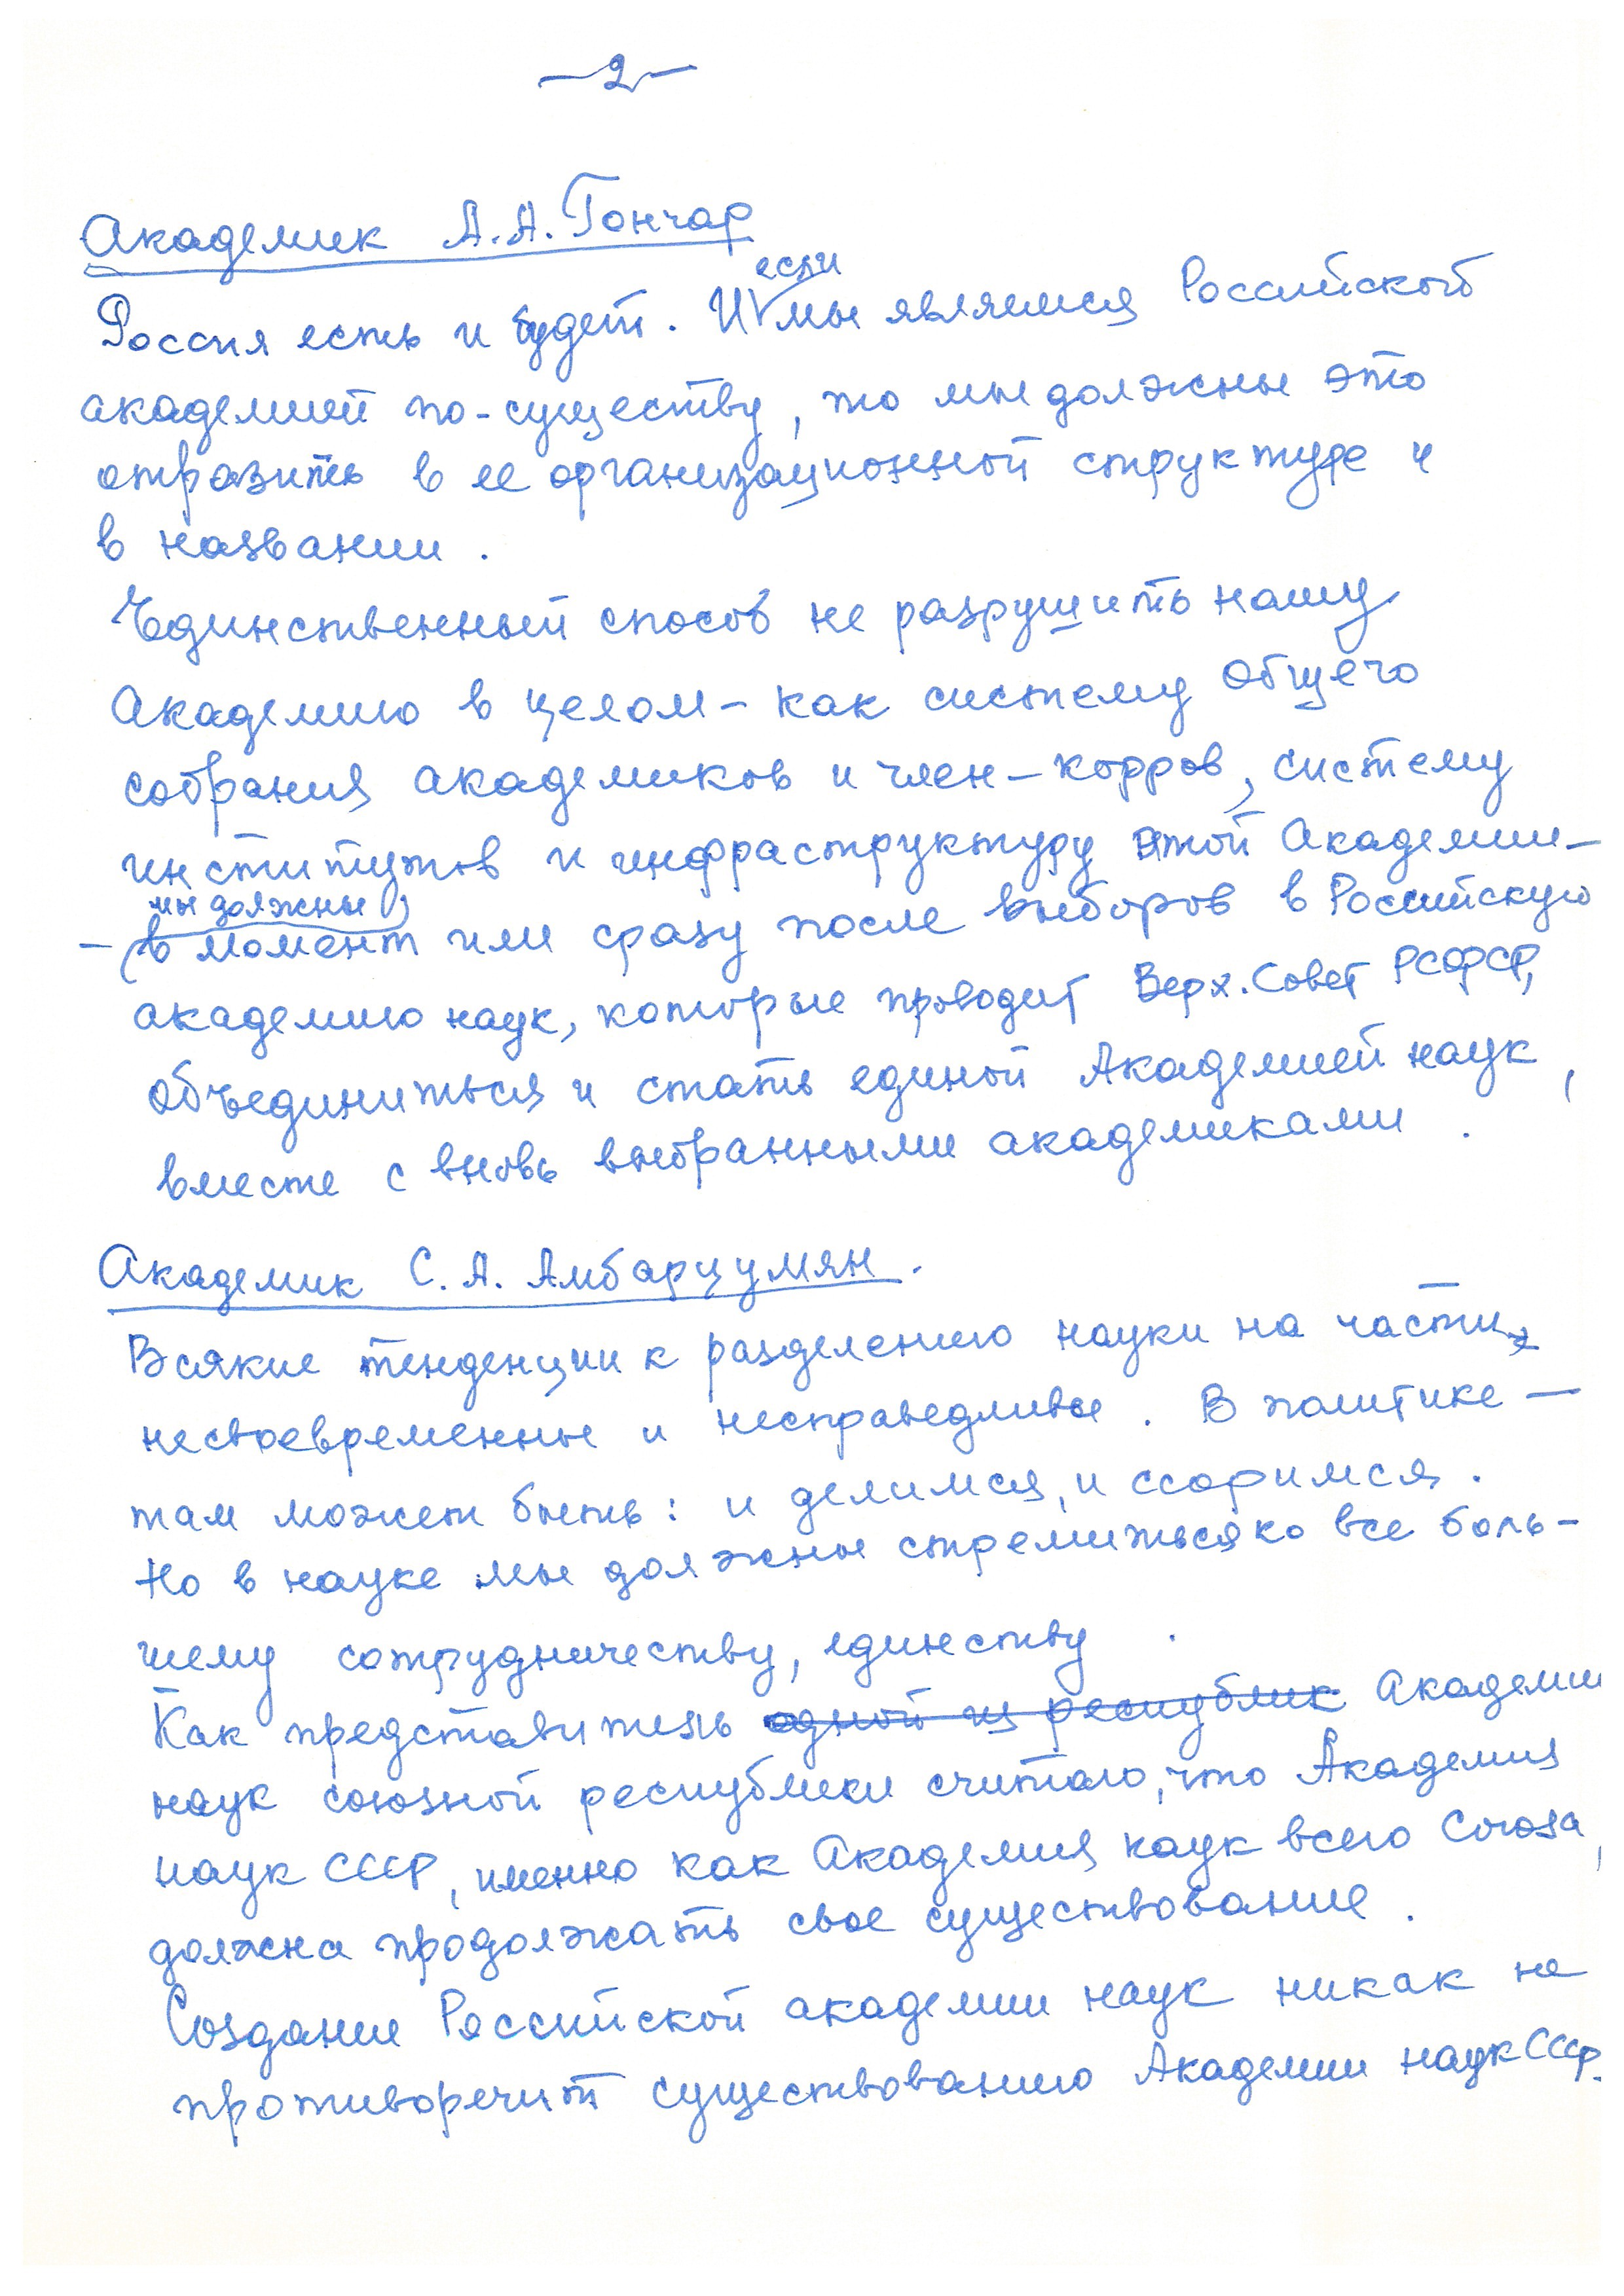 —2—
Академик А.А. Гончар
если
Россия есть и будет. И мы являемся Российской
академией по-существу, то мы должны это
отразить в ее организационной структуре и
в названии.
Единственный способ не разрушить нашу
Академию в целом – как систему общего
собрания академиков и член-корров, систему
институтов и инфраструктуру этой Академии –
мы должны
– (в момент или сразу после выборов в Российскую
академию наук, которые проводит Верх. Совет РСФСР,
объединиться и стать единой Академией наук,
вместе с вновь выбранными академиками.
Академик С.А. Амбарцумян.
Всякие тенденции к разделению науки на части
несвоевременны и несправедливы. В политике —
там может быть: и делимся, и ссоримся.
Но в науке мы должны стремиться ко все боль-
шему сотрудничеству, единству.
Как представитель одной из республик Академии
наук союзной республики считаю, что Академия
наук СССР, именно как Академия наук всего Союза,
должна продолжать свое существование.
Создание Российской академии наук никак не
противоречит существованию Академии наук СССР.